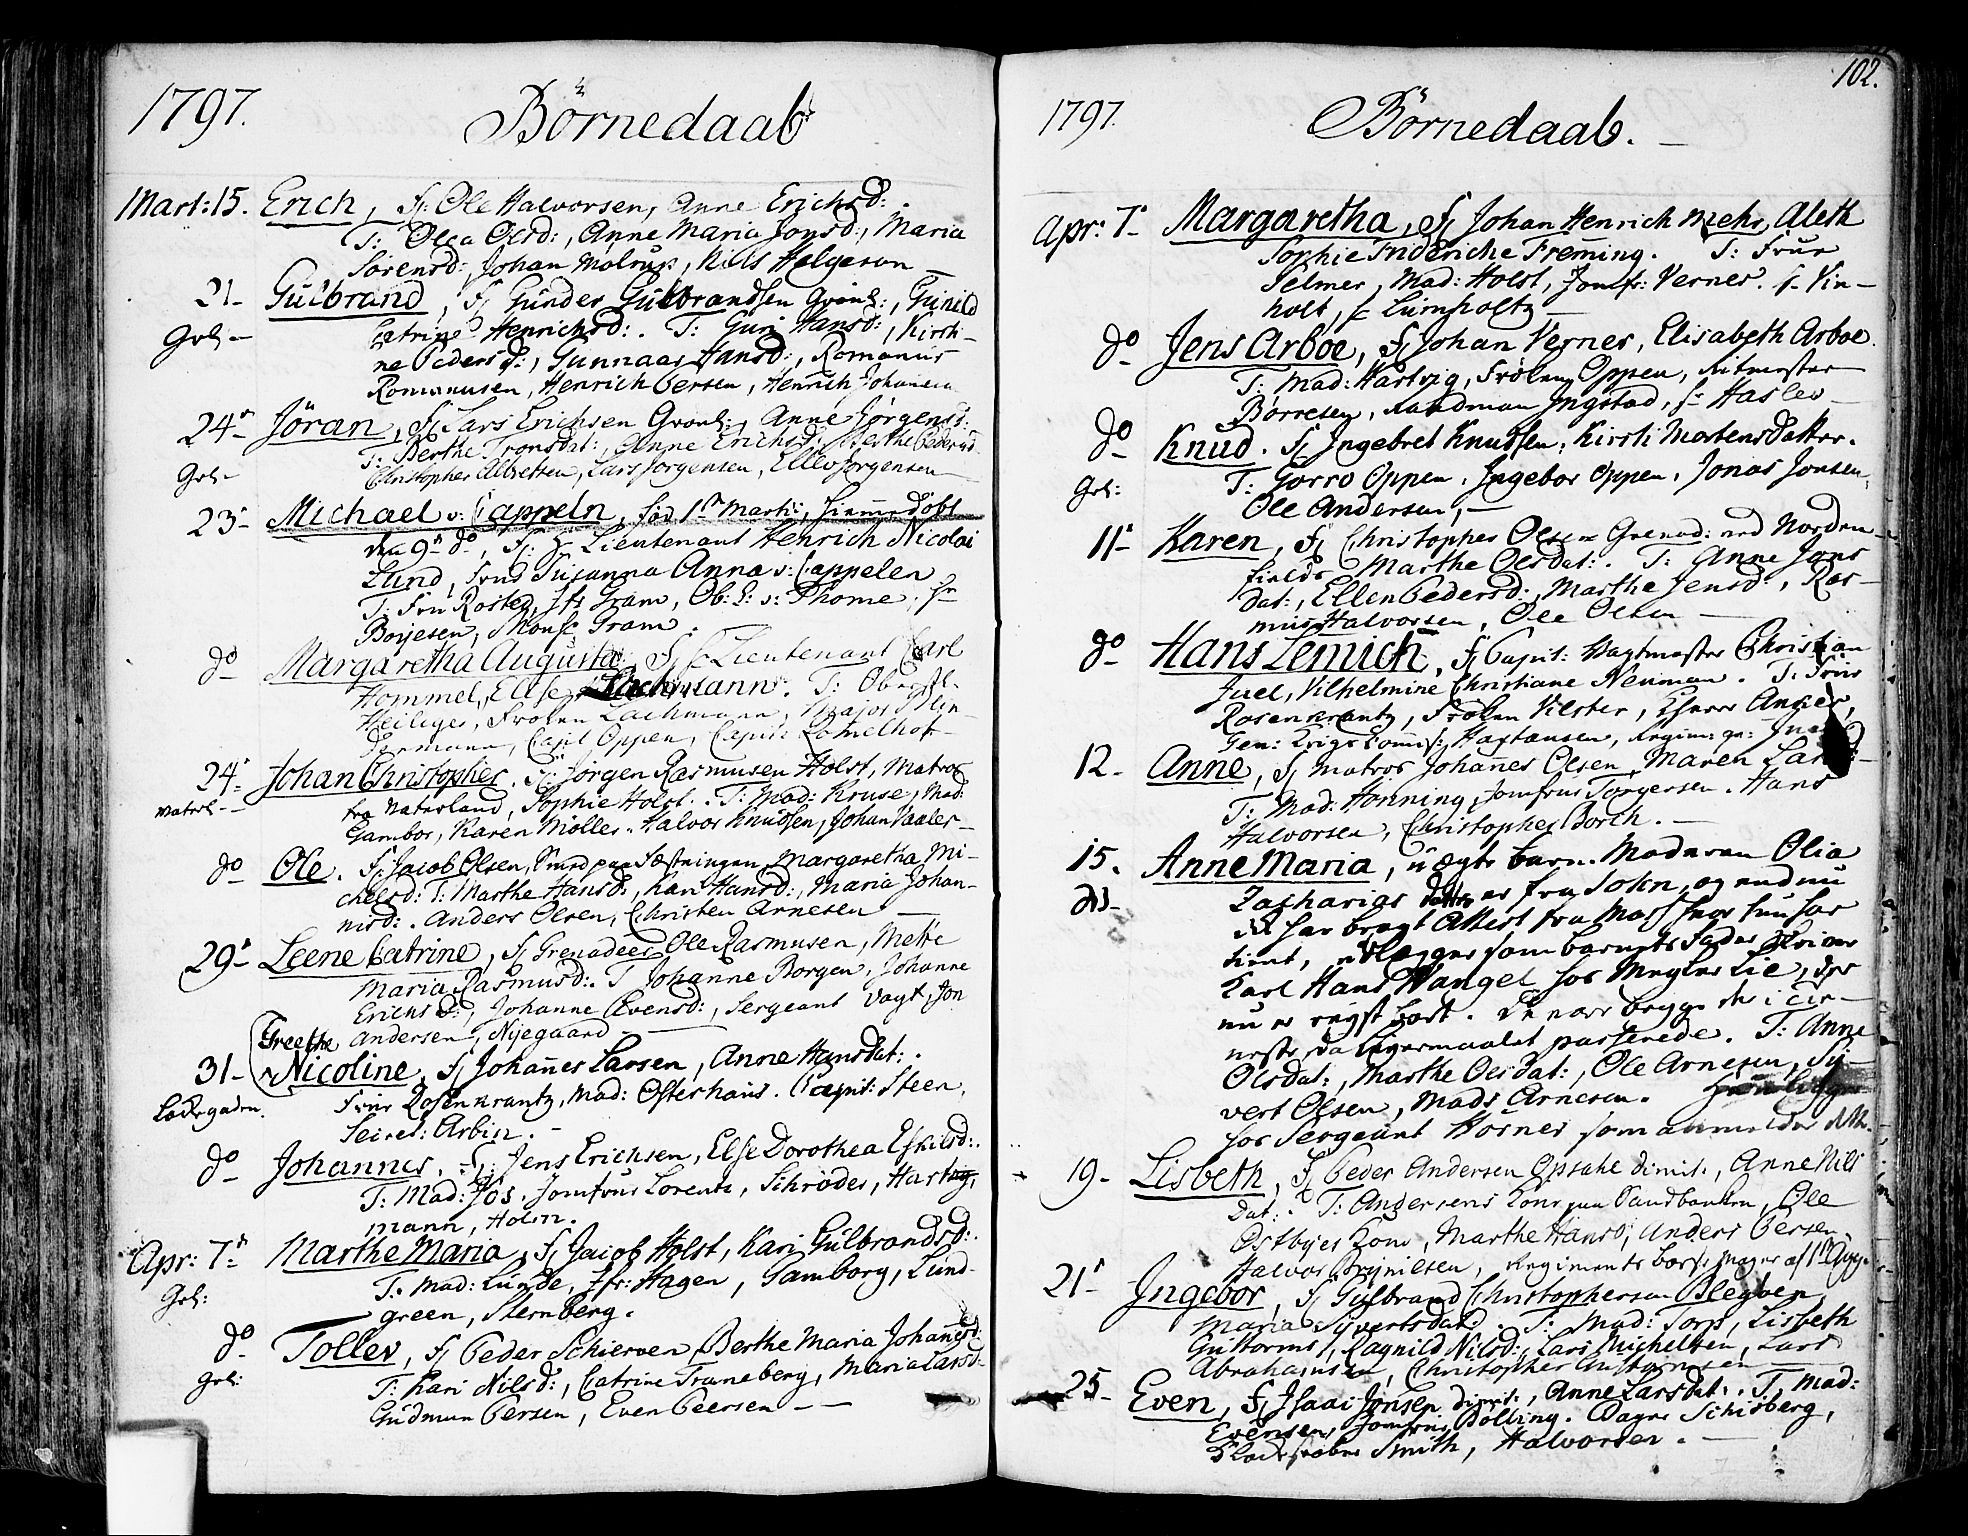 1797. Börnedaab
Mart: 15. Erich, F: Ole Halvorsen, Anne Erichsd:
T: Olea Olsd:, Anne Maria Jonsd:, Maria
Sörensd:, Johan Molrup, Niels Helgesen
21- Gulbrand, F: Gunder Gulbrandsen Grönl:, Gunild
Grl- Catrine Henrichsd:. T: Guri Hansd:, Kirsti-
ne Pedersd:, Gunnaar Hansd:, Romanus
Romanusen, Henrich Persen, Henrich Johansen
24- Jöran, F: Lars Erichsen Grönl:, Anne Jörgensd:
T: Berthe Tronsdat:, Anne Erichsd:, Berthe Pedersd:
Grl- Christopher Albretsen, Lars Jorgensen, Ellev Jorgensen
23- Michael v: Cappeln, föd 1ste Martii, hiemmedöbt
den 9n do, F: Hr Lieutenant Henrich Nicolai
Lund, Frue Susanna Anna v: Cappelen
T: Fru Rosted, Jfr Gram, Ob: L: v: Thome, Hr
Borjesen, Mons: Gram.
do- Margaretha Augusta, F: Lieutenant Carl
Hommel, Else Lachmann. T: Oberstl.
Heiliger, Fröken Lachmann, Major Blin-
dermann, Capit Oppen, Capit: Lomelhof-
24- Johan Christopher, F: Jörgen Rasmusen Holst, Matros
Waterl- fra Waterland, Sophie Holst. T: Mad: Kruse, Mad:
Gambor, Karen Möller, Halvor Knudsen, Johan Vaaler-
do Ole. F: Jacob Olsen, Smed paa Fæstningen, Margaretha Mi-
chelsd: T: Marthe Hansd:, Kari Hansd:, Maria Johan-
nisd:. Anders Olsen, Christen Arnesen
29- Leene Catrine, F: Grenadeer Ole Rasmusen, Mette
Maria Rasmusd:. T: Johanne Borgen, Johanne
Erichsd:, Johanne Evensd:, Sergeant Vagt, Jon
Andersen, Nyegaard
Greethe
31- Nicoline, F: Johanes Larsen, Anne Hansdat:.
Ladegaden. Frue Rosenkrantz, Mad: Osterhaus. Capit: Steen,
Secret: Arbin.
do- Johannes. F: Jens Erichsen, Else Dorothea Eskilsd:.
T: Mad: Jös. Jomfrue Lorentz, Schröder, Hart-
mann, Holm.
Apr: 7- Marthe Maria, F: Jacob Holst, Kari Gulbrandsd:
Grl: T: Mad: Lunde, Jfr: Hagen, Tamborg, Lund-
green, Sternberg.
do- Tollev, F: Peder Schierven, Berthe Maria Johanesd:
Grl: T: Kari Nilsd:, Catrine Traneberg, Maria Larsd:
Gudmun Persen, Even Peersen --
102.
1797. Börnedaab.
Apr: 7- Margaretha, F: Johan Henrich Mehr, Aleth
Sophie Frideriche Freming. T: Frue
Selmer, Mad: Holst, Jomfr: Verner. Vin-
holt, Lumholtz
do- Jens Arboe, F: Johan Verner, Elisabeth Arboe.
T: Mad: Hartvig, Fröken Oppen, Ritmester
Börresen, Raadman Ingstad, Hasler
do- Knud. F: Ingebret Knudsen, Kirsti Mortensdatter.
Grl: T: Gorro Oppen, Ingebor Oppen, Jonas Jonsen,
Ole Andersen,
11- Karen, F: Christopher Olsen Grenad: ved Norden-
fields Marthe Olsdat:. T: Anne Jans
dat:, Ellen Pedersd:, Marthe Jensd:, Ras-
mus Halvorsen, Ole Olsen
do- Hans Lemich, F: Capit: Vagtmester Christian
Juel, Vilhelmine Christiane Neuman. T: Frue
Rosenkrantz, Fröken Vilster, Anker,
Gen: Krigs Comiss:, Haxtausen, Regim: qr:
12- Anne, F: Matros Johanes Olsen, Maren
T: Mad: Honning, Jomfrue Torgersen. Hans
Halvorsen, Christopher Borch.
15. Anne Maria, uægte barn. Moderen Olia
do- Zacharias datter er fra Sokn, og endnu
ei har bragt Attest fra Moss hvor hun har
tient, udlægger som barnets Fader
Karl Hans Wangel hos Megler Lie, der
nu er reyst bort. De vare begge der i tie-
neste, da Leyermaalet passerede. T: Anne
Olsdat:, Marthe Olsdat:, Ole Arnesen, Sy-
vert Olsen, Mads Arnesen.
hos Sergeant Hörner som anmelder
19- Lisbeth, F: Peder Andersen Opsahe dimit:, Anne Nils
Dat:. T: Andersens Kone paa Sandbakken, Ole
Ostbyes Kone, Marthe Hansd:, Anders Persen
Halvor Brynilsen, Regiments
21- Ingebor, F: Gulbrand Christophersen Blegven,
Maria Syvertsdat:. T: Mad: Torp, Lisbeth
Guttorms, Ragnild Nilsd:, Lars Michelsen, Lars
Abrahamsen, Christopher Guttormsen
25- Even, F: Isaac Jonsen dimit:, Anne Larsdat:. T: Mad:
Evensen, Jomfrue Bölling. Dagne Schisberg,
Smith, Halvorsen.